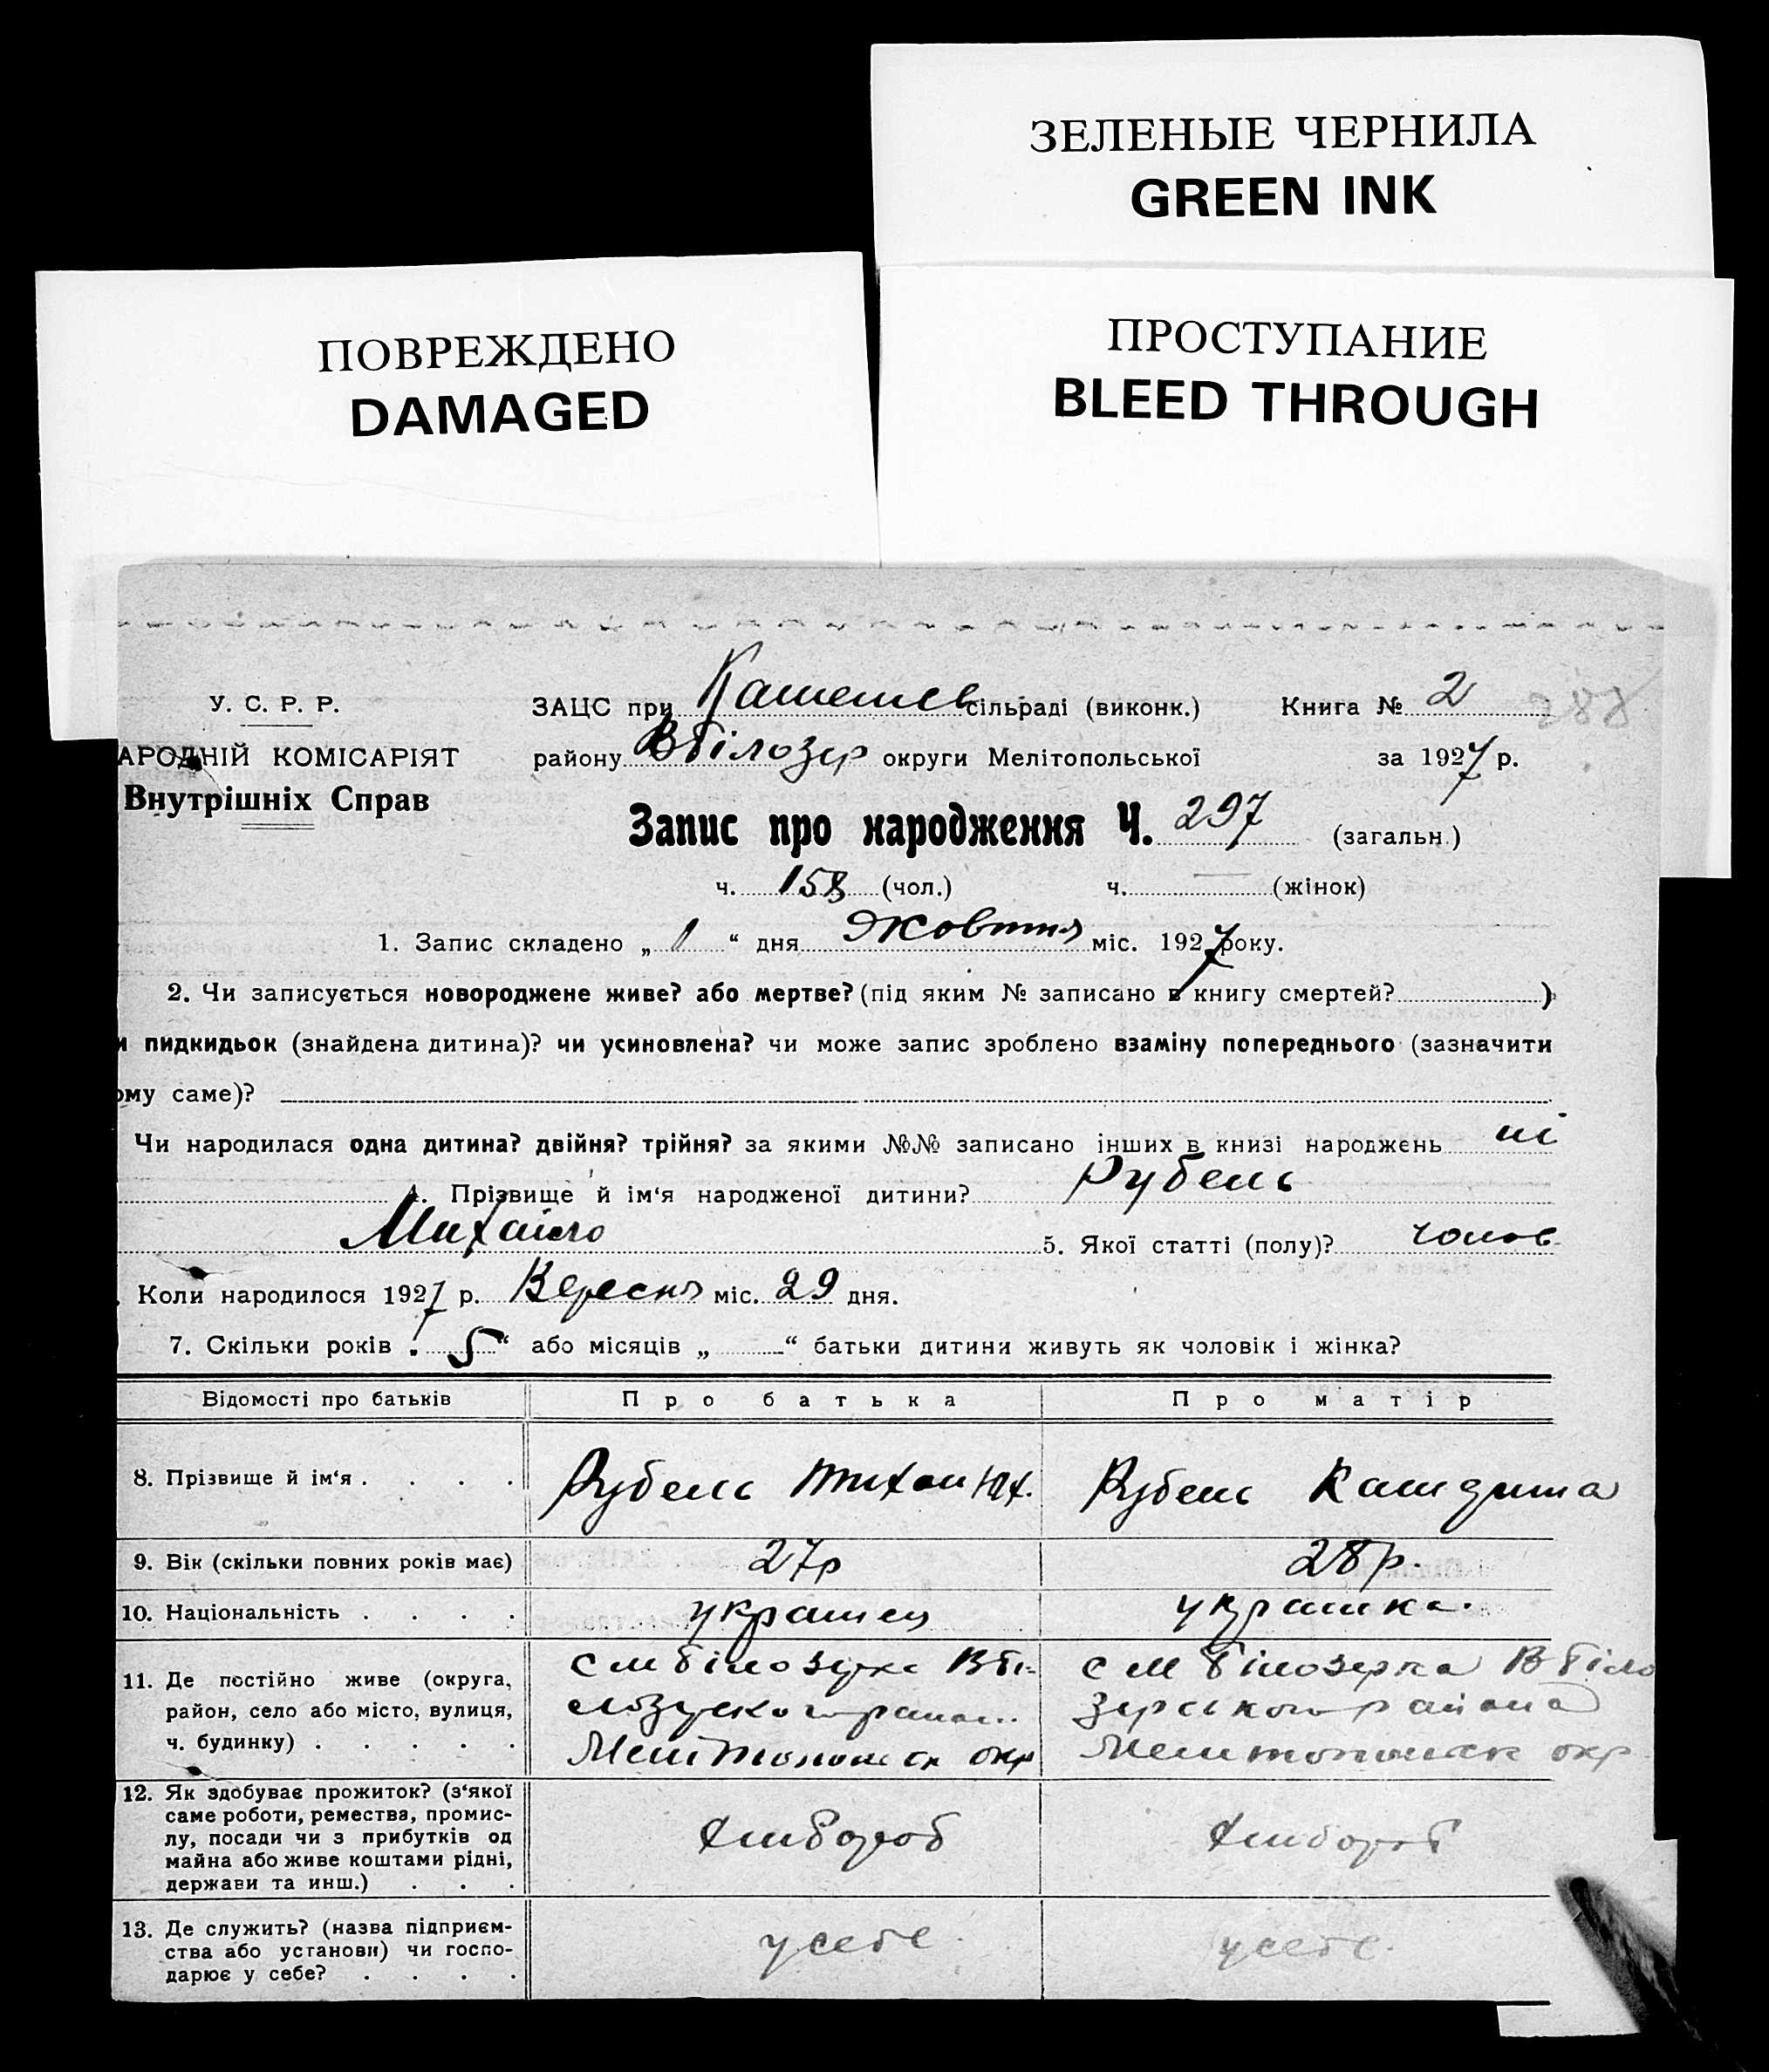 ЗЕЛЕНЫЕ ЧЕРНИЛА
GREEN INK
ПОВРЕЖДЕНО
DAMAGED
ПРОСТУПАНИЕ
BLEED THROUGH
У. С. Р. Р.
АРОДНІЙ КОМІСАРІЯТ
Внутрішніх Справ
ЗАЦС при сільраді (виконк.) Книга № 2 288
району В Білозер округи Мелітопольської за 1927 р.
Запис про народження Ч. 297 (загальн.)
ч. 158 (чол.) ч. — (жінок)
1. Запис складено „ 1 “ дня Жовтня міс. 1927 року.
2. Чи записується новороджене живе? або мертве? (під яким № записано в книгу смертей? )
и пидкидьок (знайдена дитина)? чи усиновлена? чи може запис зроблено взаміну попереднього (зазначити
ому саме)?
Чи народилася одна дитина? двійня? трійня? за якими №№ записано інших в книзі народжень ні
4. Прізвище й ім‘я народженої дитини? Рубель
Михайло 5. Якої статті (полу)? чолов
. Коли народилося 1927 р. Вересня міс. 29 дня.
7. Скільки років „ 5 “ або місяців „ “ батьки дитини живуть як чоловік і жінка?
Відомості про батьків Про батька Про матір
8. Прізвище й ім‘я . . . . Рубель Тихон Рубель
9. Вік (скільки повних років має) 27р 28р.
10. Національність . . . . українец українка.
11. Де постійно живе (округа,
район, село або місто, вулиця,
ч. будинку) . . . . .
с м білозерка В бі-
лозерского району
Мелітопольск окр
с м білозерка В біло
зерського района
Мелитопольск окр
12. Як здобуває прожиток? (з‘якої
саме роботи, ремества, промис-
лу, посади чи з прибутків од
майна або живе коштами рідні,
держави та инш.) . . .
хлибороб хлибороб
13. Де служить? (назва підприєм-
ства або установи) чи госпо-
дарює у себе? . . . .
у себе у себе.